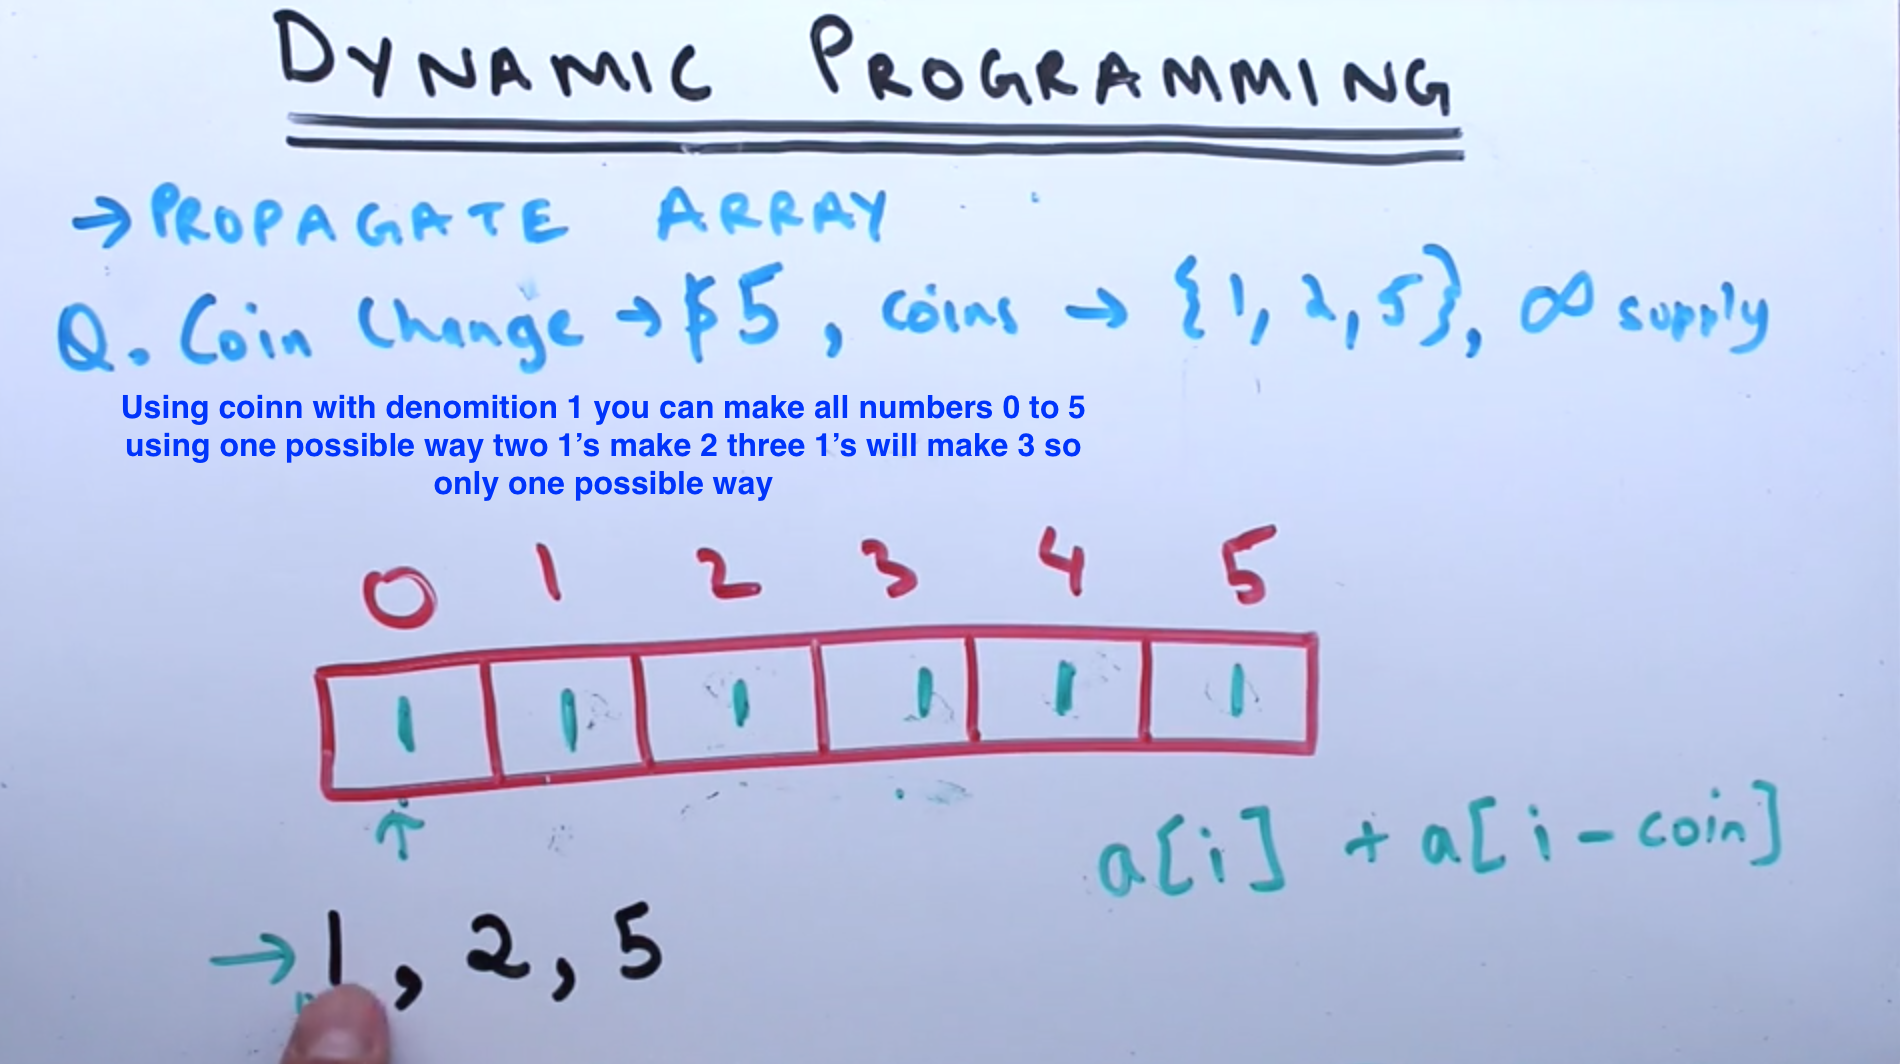 DYNAMIC PROGRAMMING
→ PROPAGATE ARRAY
Q. Coin Change → $5, coins → {1, 2, 5}, ∞ supply
Using coinn with denomition 1 you can make all numbers 0 to 5
using one possible way two 1’s make 2 three 1’s will make 3 so
only one possible way
0 1 2 3 4 5
1 1 1 1 1 1
↑
a[i] + a[i - coin]
→ 1, 2, 5